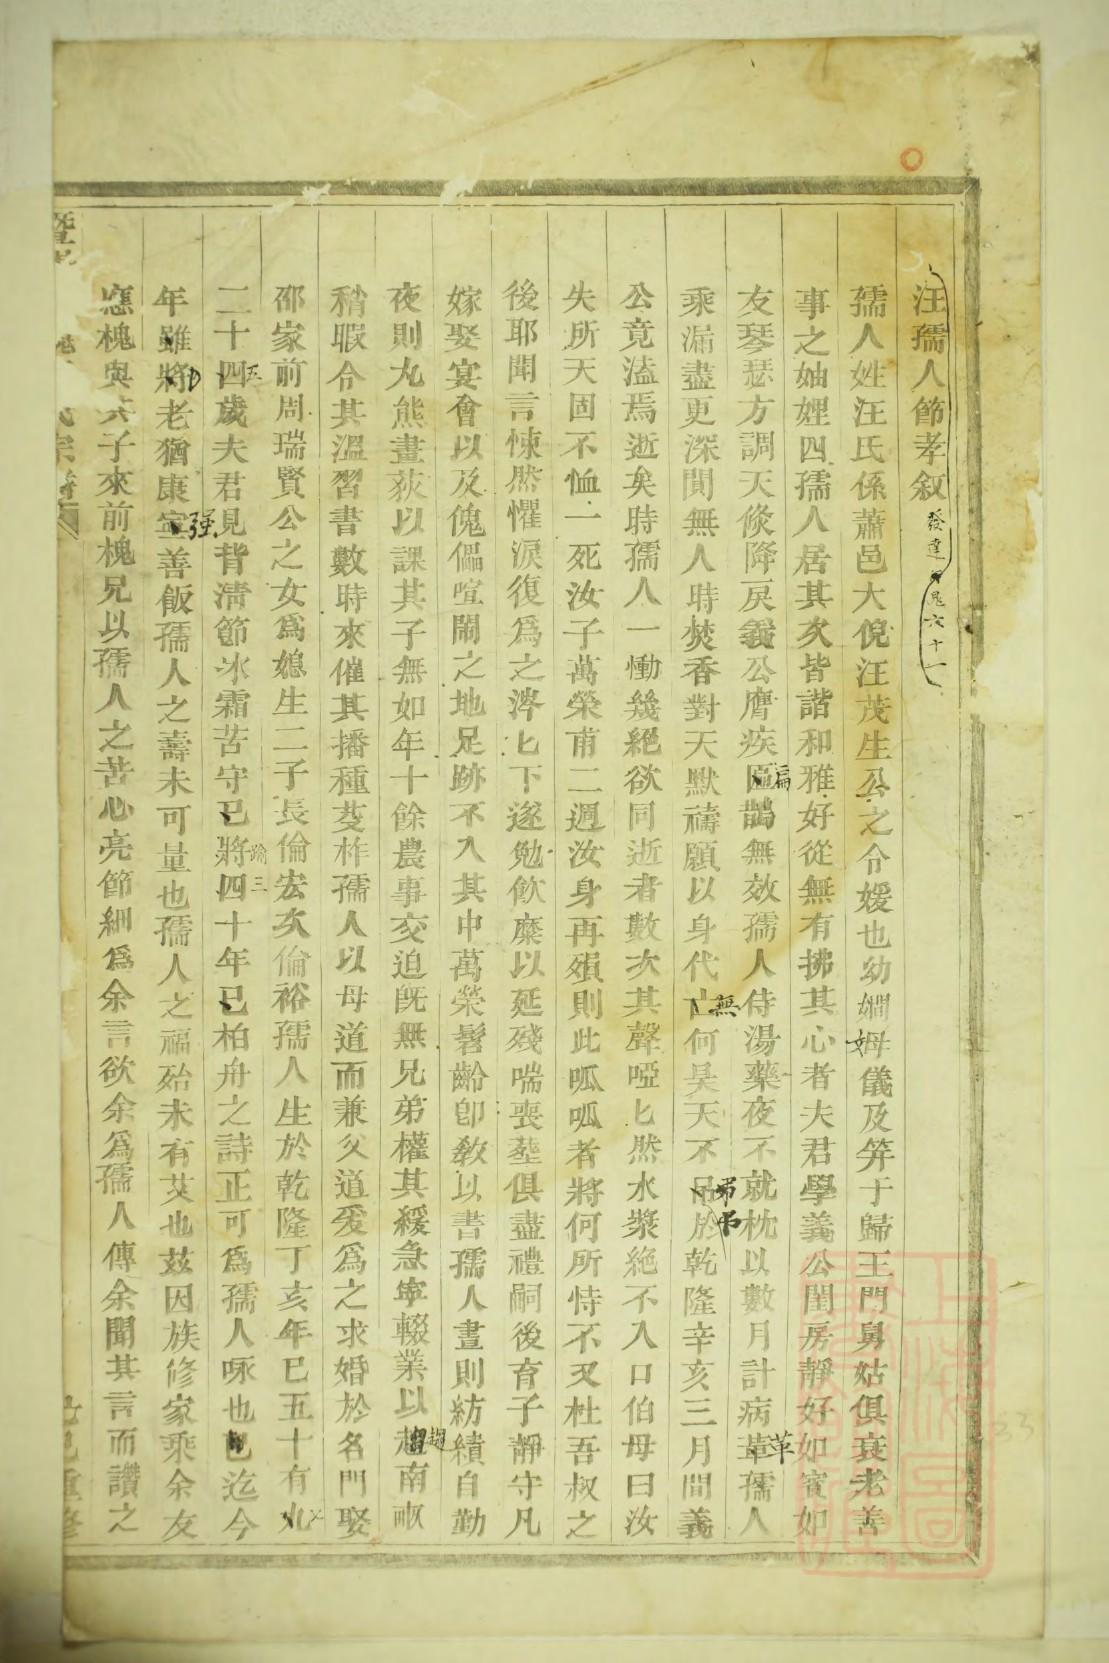 汪孺人節孝敘
孺人姓汪氏係蕭邑大倪汪茂生公之令媛也幼嫻姆儀及笄于歸王門舅姑俱衰老善
事之妯娌四孺人居其次皆諧和雅好從無有拂其心者夫君學義公閨房靜好如賓如
友琴瑟方調天倏降戾義公膺疾匾鵲無效孺人侍湯藥夜不就枕以數月計病革孺人
乘漏盡更深閴無人時焚香對天默禱願以身代亡何昊天不吊於乾隆辛亥三月間義
公竟溘焉逝矣時孺人一慟幾絕欲同逝者數次其聲啞匕然水漿絕不入口伯母曰汝
失所天固不恤一死汝子萬榮甫二週汝身再殞則此呱呱者將何所恃不又杜吾叔之
後耶聞言悚然懼淚復爲之涔匕下遂勉飲糜以延殘喘喪塟俱盡禮嗣後育子靜守凡
嫁娶宴會以及傀儡喧鬧之地足跡不入其中萬榮髫齡卽敎以書孺人晝則紡績自勤
夜則丸熊畫荻以課其子無如年十餘農事交迫旣無兄弟權其緩急寧輟業以趨南畝
稍暇令其溫習書數時來催其播種芟柞孺人以母道而兼父道爰爲之求婚於名門娶
邵家前周瑞賢公之女爲媳生二子長倫宏次倫裕孺人生於乾隆丁亥年已五十有九
二十四歲夫君見背淸節冰霜苦守已將四十年已柏舟之詩正可爲孺人咏也已迄今
年雖將老猶康寧善飯孺人之壽未可量也孺人之福殆未有艾也茲因族修家乘余友
應槐與其子來前槐兄以孺人之苦心亮節細爲余言欲余爲孺人傳余聞其言而讚之